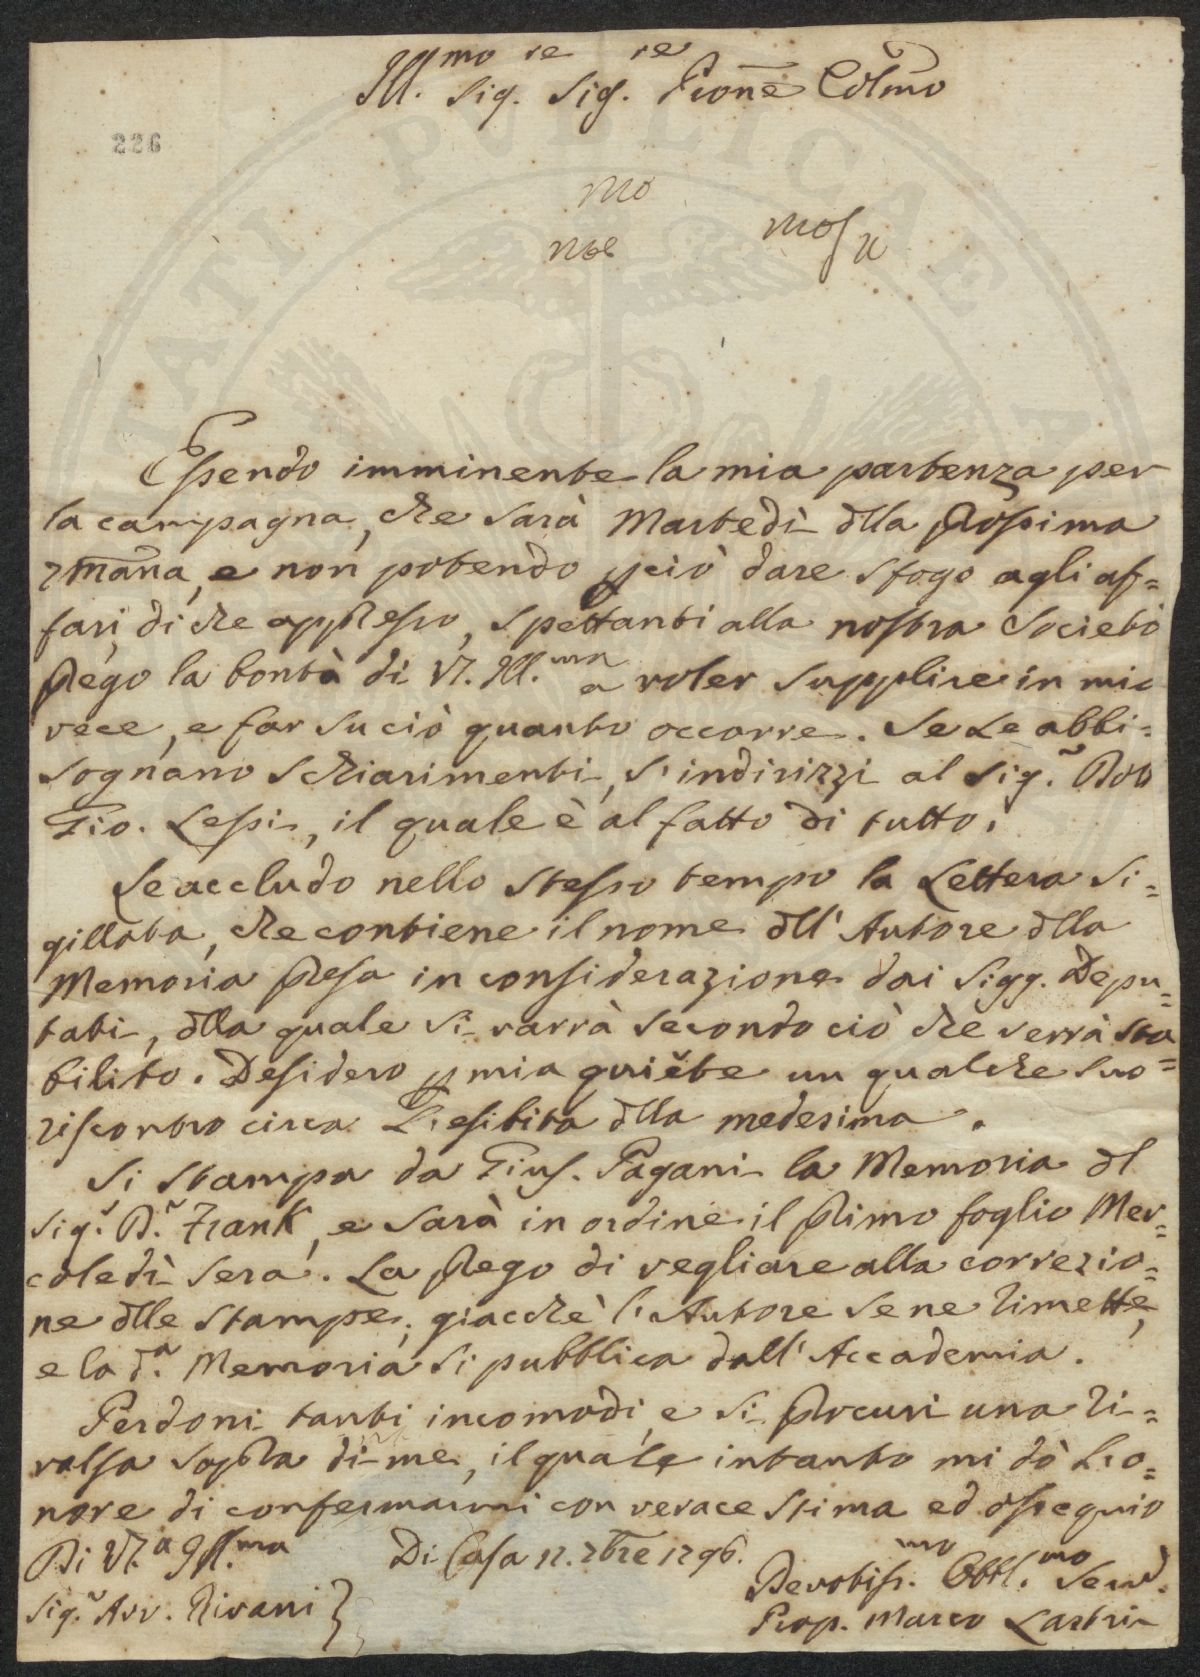 Ill.mo Sig.re Sig.re Prone Colmo
226
Essendo imminente la mia partenza per
la campagna, che sarà Martedì dlla prossima
7mana, e non potendo pciò dare sfogo agli af=
fari, di che appresso, spettanti alla nostra Società
prego la bontà di VS. Ill.ma a voler supplire in mia
vece, e far su ciò quanto occorre. Se Le abbi=
sognano schiarimenti, s'indirizzi al Sig.r Dott
Gio. Lessi, il quale è al fatto di tutto.
Le accludo nello stesso tempo la Lettera si=
gillata, che contiene il nome dll'Autore dlla
Memoria presa in considerazione dai Sigg. Depu=
tati, dlla quale si varrà secondo ciò che verrà sta=
bilito. Desidero p mia quiete un qualche suo=
riscontro circa L'esibita dlla medesima.
Si stampa da Gius. Pagani la Memoria dl
Sig.r D.r Frank, e sarà in ordine il primo foglio Mer=
coledì sera. La prego di vegliare alla correzio=
ne dlle stampe, giacchè l'Autore se ne rimette,
e la d.a Memoria si pubblica dall'Accademia.
Perdoni tanti incomodi, e si procuri una ri=
valsa sopra di me, il quale intanto mi dò L'o=
nore di confermarmi con verace stima ed ossequio
Di VS.a Ill.ma Di Casa 17. 7bre 1796.
Devotiss.mo Obbl.mo Serv.
Sig.r Avv. Rivani } Prop. Marco Lastri